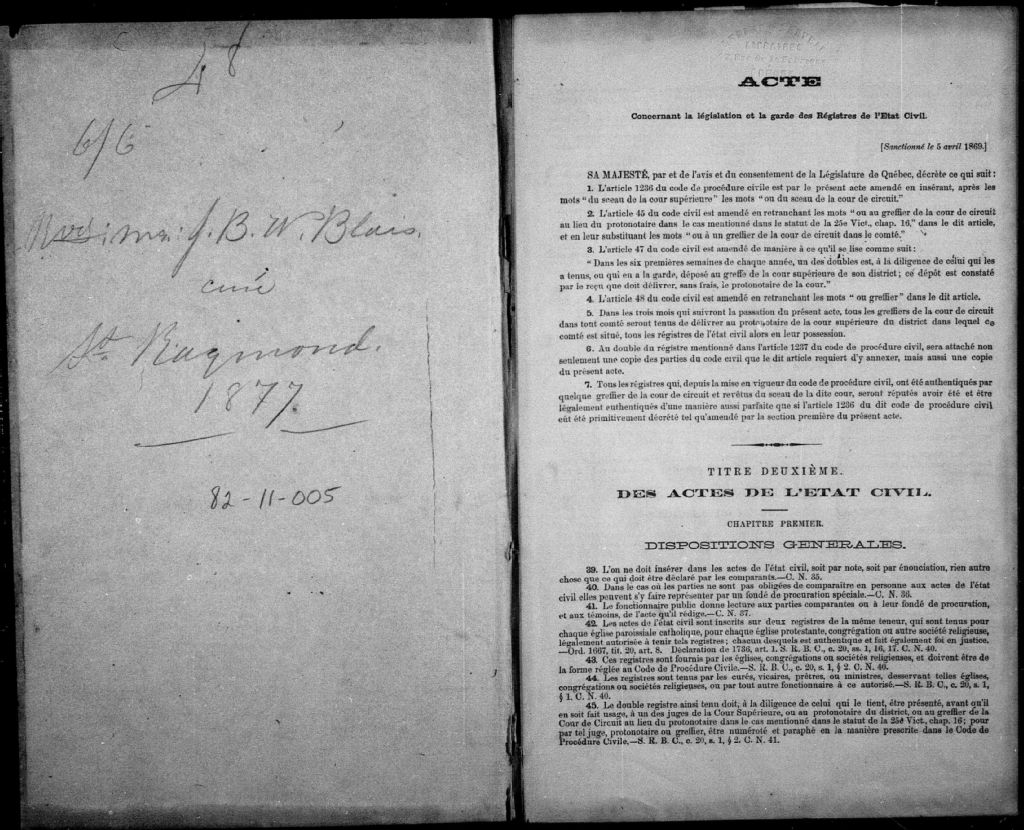 48
6/6
J. B. W. Blais.
curé
St. Raymond.
1877.
82-11-005
ACTE
Concernant la législation et la garde des Régistres de l'Etat Civil.
[Sanctionné le 5 avril 1869.]
SA MAJESTÉ, par et de l'avis et du consentement de la Législature de Québec, décrète ce qui suit :
1. L'article 1236 du code de procédure civile est par le présent acte amendé en insérant, après les
mots "du sceau de la cour supérieure" les mots "ou du sceau de la cour de circuit."
2. L'article 45 du code civil est amendé en retranchant les mots "ou au greffier de la cour de circuit
au lieu du protonotaire dans le cas mentionné dans le statut de la 25e Vict., chap. 16," dans le dit article,
et en leur substituant les mots "ou à un greffier de la cour de circuit dans le comté."
3. L'article 47 du code civil est amendé de manière à ce qu'il se lise comme suit :
"Dans les six premières semaines de chaque année, un des doubles est, à la diligence de celui qui les
a tenus, ou qui en a la garde, déposé au greffe de la cour supérieure de son district ; ce dépôt est constaté
par le reçu que doit délivrer, sans frais, le protonotaire de la cour."
4. L'article 48 du code civil est amendé en retranchant les mots "ou greffier" dans le dit article.
5. Dans les trois mois qui suivront la passation du présent acte, tous les greffiers de la cour de circuit
dans tout comté seront tenus de délivrer au protonotaire de la cour supérieure du district dans lequel ce
comté est situé, tous les régistres de l'état civil alors en leur possession.
6. Au double du régistre mentionné dans l'article 1237 du code de procédure civil, sera attaché non
seulement une copie des parties du code civil que le dit article requiert d'y annexer, mais aussi une copie
du présent acte.
7. Tous les régistres qui, depuis la mise en vigueur du code de procédure civil, ont été authentiqués par
quelque greffier de la cour de circuit et revêtus du sceau de la dite cour, seront réputés avoir été et être
légalement authentiqués d'une manière aussi parfaite que si l'article 1236 du dit code de procédure civil
eût été primitivement décrété tel qu'amendé par la section première du présent acte.
TITRE DEUXIÈME.
DES ACTES DE L'ETAT CIVIL.
CHAPITRE PREMIER.
DISPOSITIONS GENERALES.
39. L'on ne doit insérer dans les actes de l'état civil, soit par note, soit par énonciation, rien autre
chose que ce qui doit être déclaré par les comparants.—C. N. 35.
40. Dans le cas où les parties ne sont pas obligées de comparaître en personne aux actes de l'état
civil elles peuvent s'y faire représenter par un fondé de procuration spéciale.—C. N. 36.
41. Le fonctionnaire public donne lecture aux parties comparantes ou à leur fondé de procuration,
et aux témoins, de l'acte qu'il rédige.—C. N. 37.
42. Les actes de l'état civil sont inscrits sur deux registres de la même teneur, qui sont tenus pour
chaque église paroissiale catholique, pour chaque église protestante, congrégation ou autre société religieuse,
légalement autorisée à tenir tels registres ; chacun desquels est authentique et fait également foi en justice.
—Ord. 1667, tit. 20, art. 8. Déclaration de 1736, art. 1. S. R. B. C., c. 20, ss. 1, 16, 17. C. N. 40.
43. Ces registres sont fournis par les églises, congrégations ou sociétés religieuses, et doivent être de
la forme réglée au Code de Procédure Civile.—S. R. B. C., c. 20, s. 1, § 2. C. N. 40.
44. Les registres sont tenus par les curés, vicaires, prêtres, ou ministres, desservant telles églises,
congrégations ou sociétés religieuses, ou par tout autre fonctionnaire à ce autorisé.—S. R. B. C., c. 20, s. 1,
§ 1. C. N. 40.
45. Le double registre ainsi tenu doit, à la diligence de celui qui le tient, être présenté, avant qu'il
en soit fait usage, à un des juges de la Cour Supérieure, ou au protonotaire du district, ou au greffier de la
Cour de Circuit au lieu du protonotaire dans le cas mentionné dans le statut de la 25e Vict., chap. 16 ; pour
par tel juge, protonotaire ou greffier, être numéroté et paraphé en la manière prescrite dans le Code de
Procédure Civile.—S. R. B. C., c. 20, s. 1, § 2. C. N. 41.